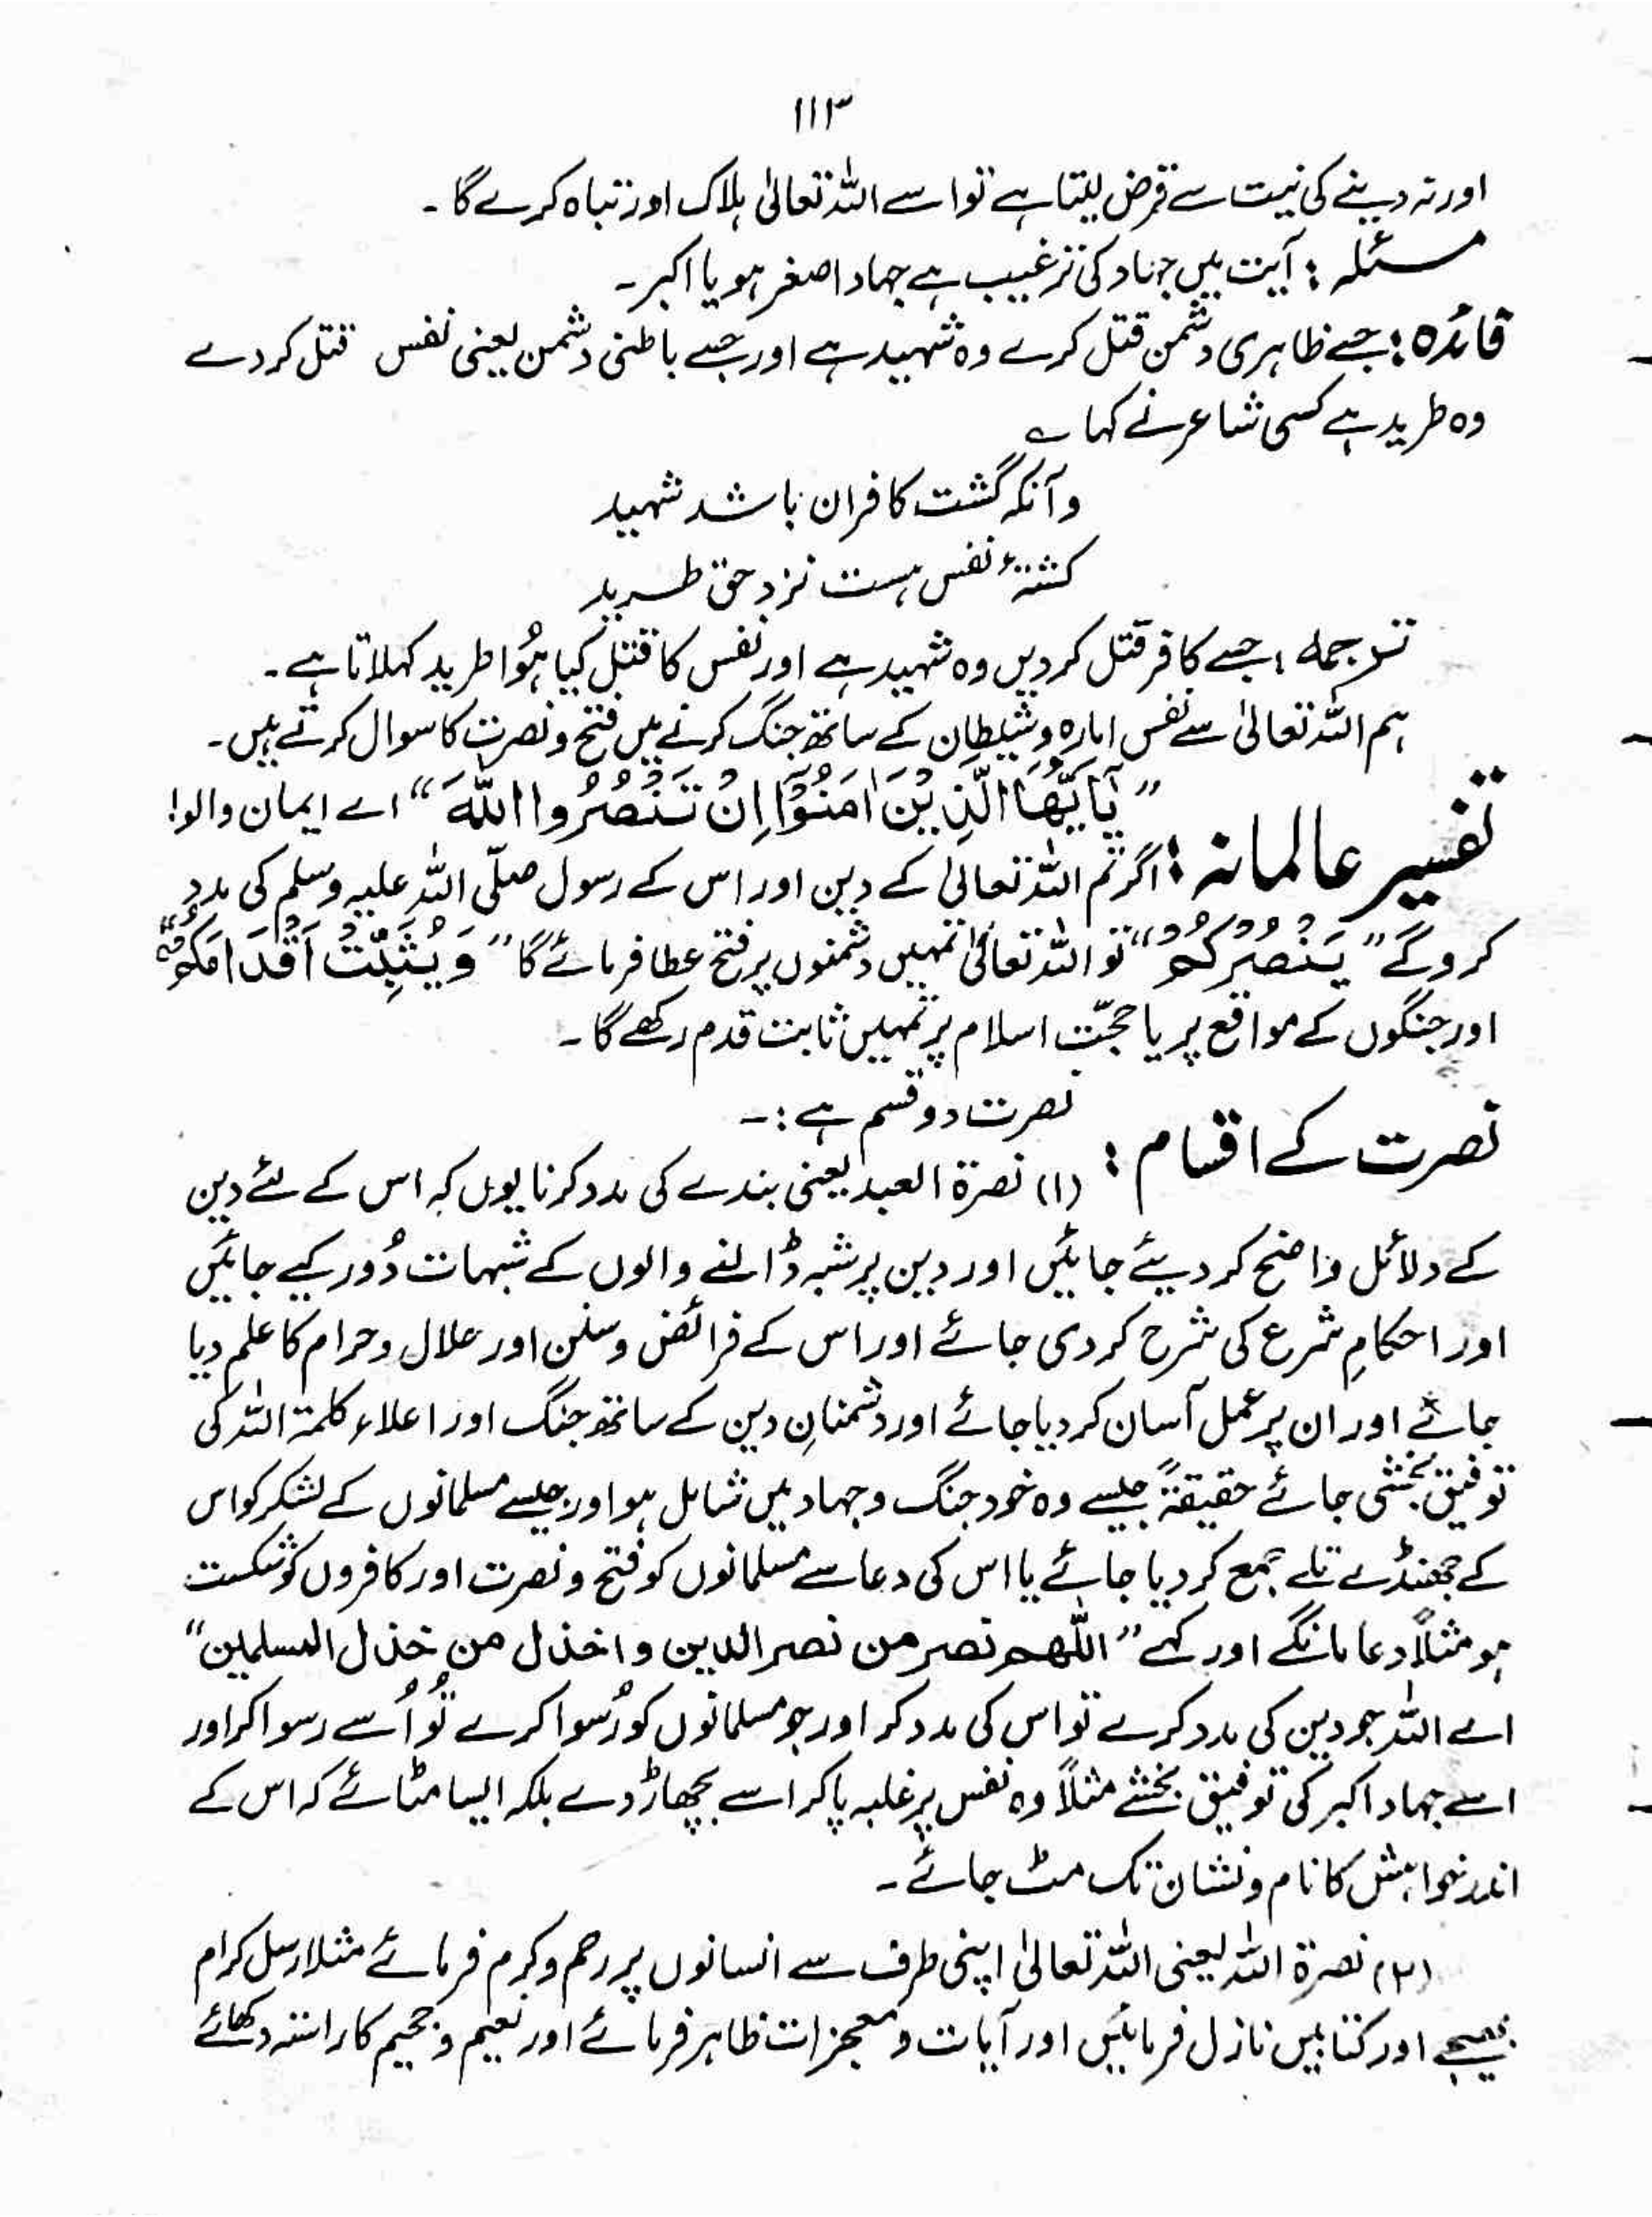 ۱۱۳
اور نہ دینے کی نیت سے قرض لیتا ہے تو اسے اللہ تعالیٰ ہلاک اور تباہ کرے گا ۔
مسئلہ : آیت میں جہاد کی ترغیب ہے جہاد اصغر ہو یا اکبر ۔
فائدہ : جسے ظاہری دشمن قتل کرے وہ شہید ہے اور جسے باطنی دشمن یعنی نفس قتل کر دے
وہ طرید ہے کسی شاعر نے کہا ؎
وآنکہ گشت کافران باشد شہید
کشتۂ نفس ہست نزد حق طرید
ترجمہ : جسے کافر قتل کر دیں وہ شہید ہے اور نفس کا قتل کیا ہُوا طرید کہلاتا ہے ۔
ہم اللہ تعالیٰ سے نفس امارہ و شیطان کے ساتھ جنگ کرنے میں فتح و نصرت کا سوال کرتے ہیں ۔
تفسیر عالمانہ : ”یٰۤاَیُّهَا الَّذِیْنَ اٰمَنُوْۤا اِنْ تَنْصُرُوا اللّٰهَ“ اے ایمان والو!
اگر تم اللہ تعالیٰ کے دین اور اس کے رسول صلّی اللہ علیہ وسلم کی مدد
کرو گے ”یَنْصُرْكُمْ“ تو اللہ تعالیٰ تمہیں دشمنوں پر فتح عطا فرمائے گا ”وَیُثَبِّتْ اَقْدَامَكُمْ“
اور جنگوں کے مواقع پر یا حجّت اسلام پر تمہیں ثابت قدم رکھے گا ۔
نصرت کے اقسام : نصرت دو قسم ہے :۔
(۱) نصرۃ العبد یعنی بندے کی مدد کرنا یوں کہ اس کے لئے دین
کے دلائل واضح کر دیئے جائیں اور دین پر شبہ ڈالنے والوں کے شبہات دُور کیے جائیں
اور احکامِ شرع کی شرح کر دی جائے اور اس کے فرائض و سنن اور حلال و حرام کا علم دیا
جائے اور ان پر عمل آسان کر دیا جائے اور دشمنانِ دین کے ساتھ جنگ اور اعلاء کلمۃ اللہ کی
توفیق بخشی جائے حقیقۃً جیسے وہ خود جنگ و جہاد میں شامل ہو اور جیسے مسلمانوں کے لشکر کو اس
کے جھنڈے تلے جمع کر دیا جائے یا اس کی دعا سے مسلمانوں کو فتح و نصرت اور کافروں کو شکست
ہو مثلاً دعا مانگے اور کہے ”اللّٰھم نصر من نصر الدین و اخذل من خذل المسلمین“
اے اللہ جو دین کی مدد کرے تو اس کی مدد کر اور جو مسلمانوں کو رُسوا کرے تُو اُسے رسوا کر اور
اسے جہاد اکبر کی توفیق بخشے مثلاً وہ نفس پر غلبہ پا کر اسے پچھاڑ دے بلکہ ایسا مٹائے کہ اس کے
اندر خواہش کا نام و نشان تک مٹ جائے ۔
(۲) نصرۃ اللہ یعنی اللہ تعالیٰ اپنی طرف سے انسانوں پر رحم و کرم فرمائے مثلا رسل کرام
بھیجے اور کتابیں نازل فرمائیں اور آیات و معجزات ظاہر فرمائے اور نعیم و جحیم کا راستہ دکھائے